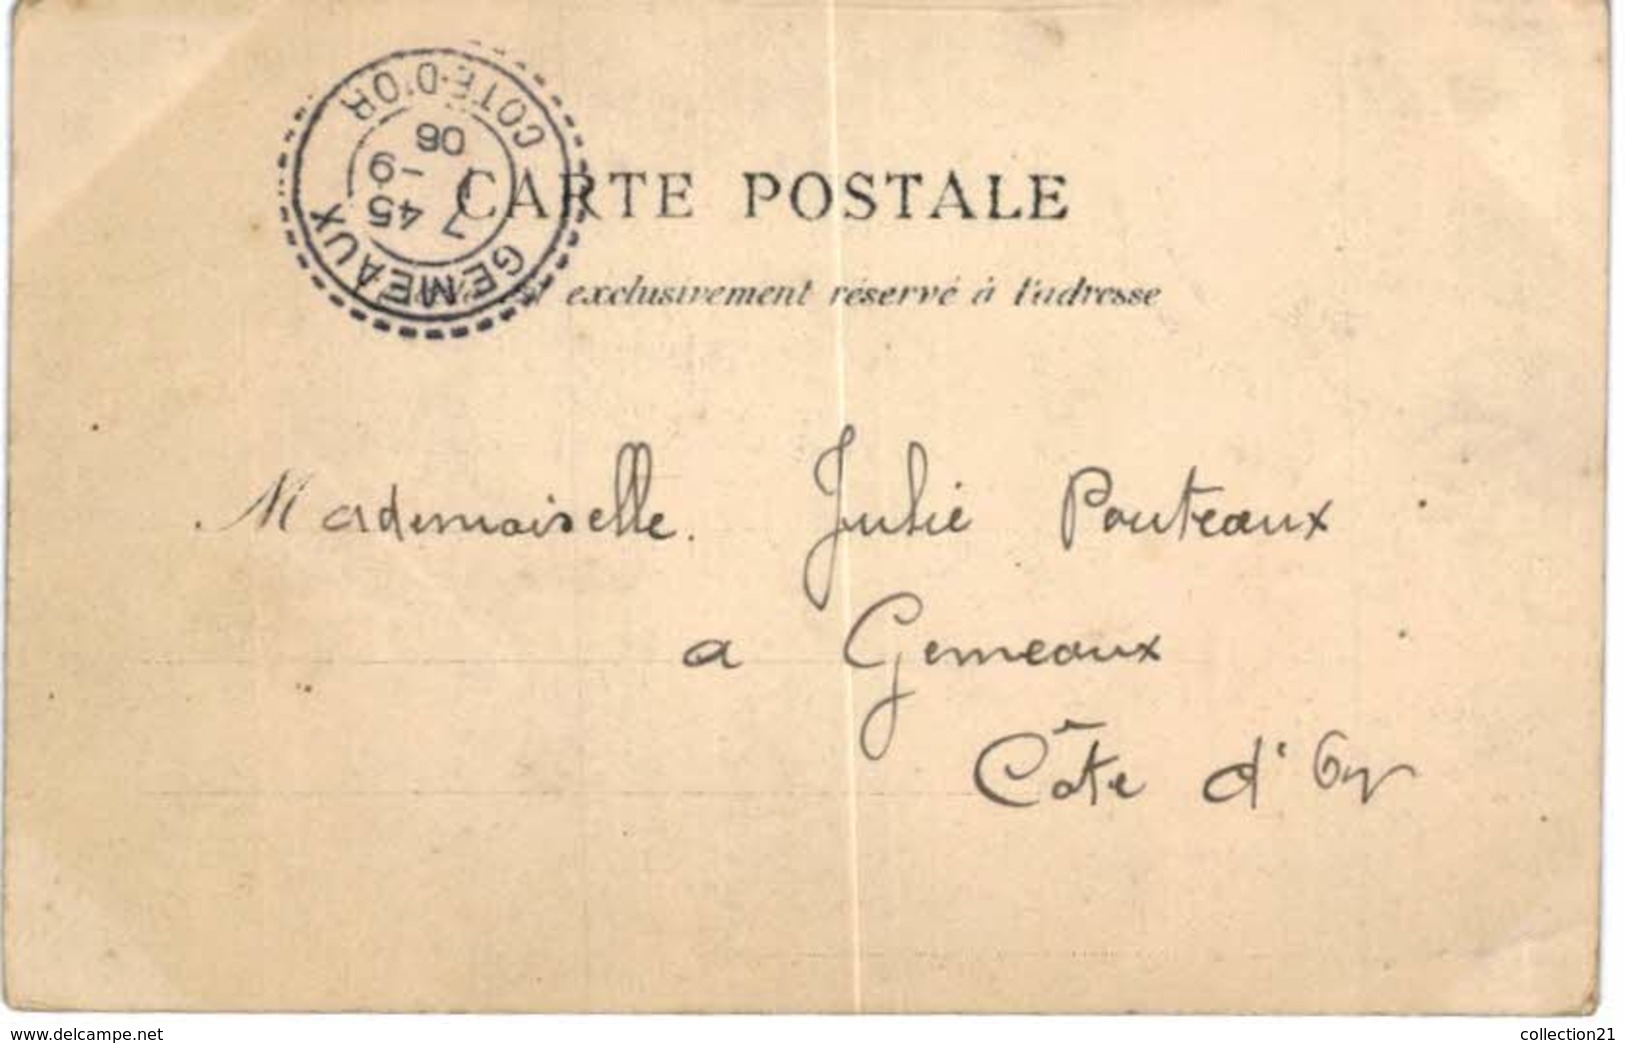 CARTE POSTALE
exclusivement réservé à l'adresse
GEMEAUX
7 45
-9
06
COTE-D'OR
Mademoiselle. Julie Pouteaux
a Gemeaux
Côte d'Or
www.delcampe.net
collection21